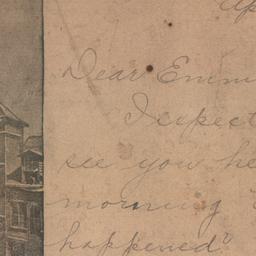 Ap
Dear Emm
I expect
see you he
morning
happened"